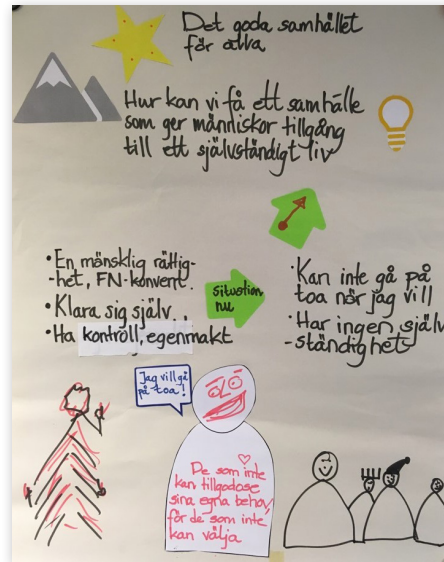 Det goda samhället
för alla
Hur kan vi få ett samhälle
som ger människor tillgång
till ett självständigt liv
• En mänsklig rättig-
-het, FN-konvent.
• Klara sig själv.
• Ha kontroll, egenmakt
Situation
nu
• Kan inte gå på
toa när jag vill
• Har ingen själv
-ständighet
Jag vill gå
på toa!
De som inte
kan tillgodose
sina egna behov,
för de som inte
kan välja